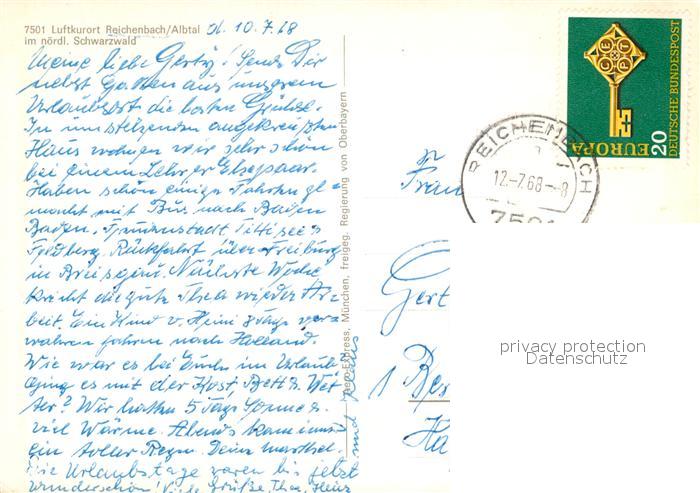 7501 Luftkurort Reichenbach/Albtal
im nördl. Schwarzwald
d. 10.7.68
Meine liebe Gerty! Sende Dir
nebst Gatten aus unserem
Urlaubsort die besten Grüße.
In umstehenden angekreuzten
Haus wohnen wir sehr schön
bei einem Lehrer Ehepaar.
Haben schön einige Fahrten ge
macht mit Bus nach Baden
Baden, Freudenstadt Titisee
Feldberg. Rückfahrt über Freiburg
in Breisgau. Nächste Woche
die gute Thea wieder Ar
beit. Ein Kind v. Heini 8 Tage ver
wahren fahren nach Holland.
Wie war es bei Euch im Urlaub
Ging es mit der Kost, Bett u. Wet
ter? Wir hatten 5 Tage Sonne u.
viel Wärme. Abends kam immer
ein toller Regen. Deine
Die Urlaubstage waren bis jetzt
wunderschön! Viele Grüße Thea, Heinz
und
Aero-Express, München, freigeg. Regierung von Oberbayern
CEPT
EUROPA
20
DEUTSCHE BUNDESPOST
REICHENBACH
12.-7.68-8
7501
Frau
Gert
1 Ber
Ha
privacy protection
Datenschutz